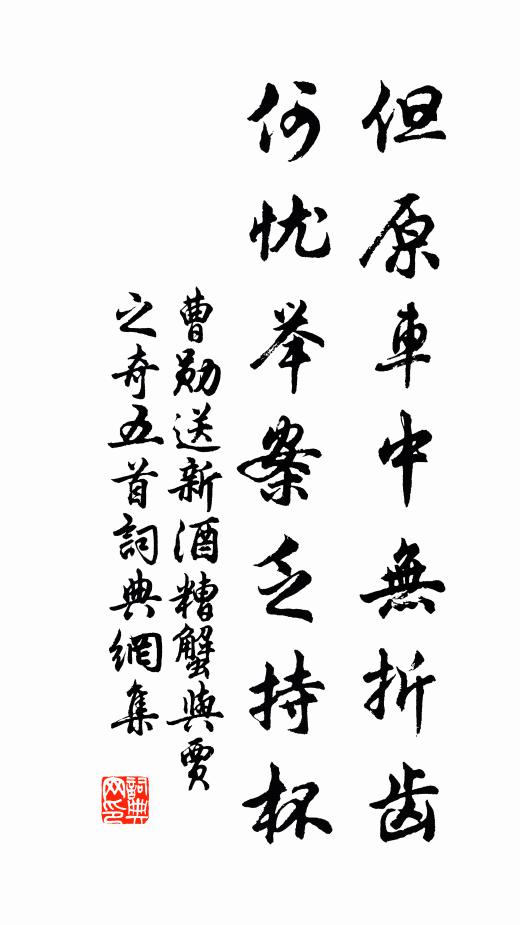 但原車中無折齿
何忧举案乏持杯
曹勋送新酒糟蟹與賈
之奇五首詞典網集
詞典
网印